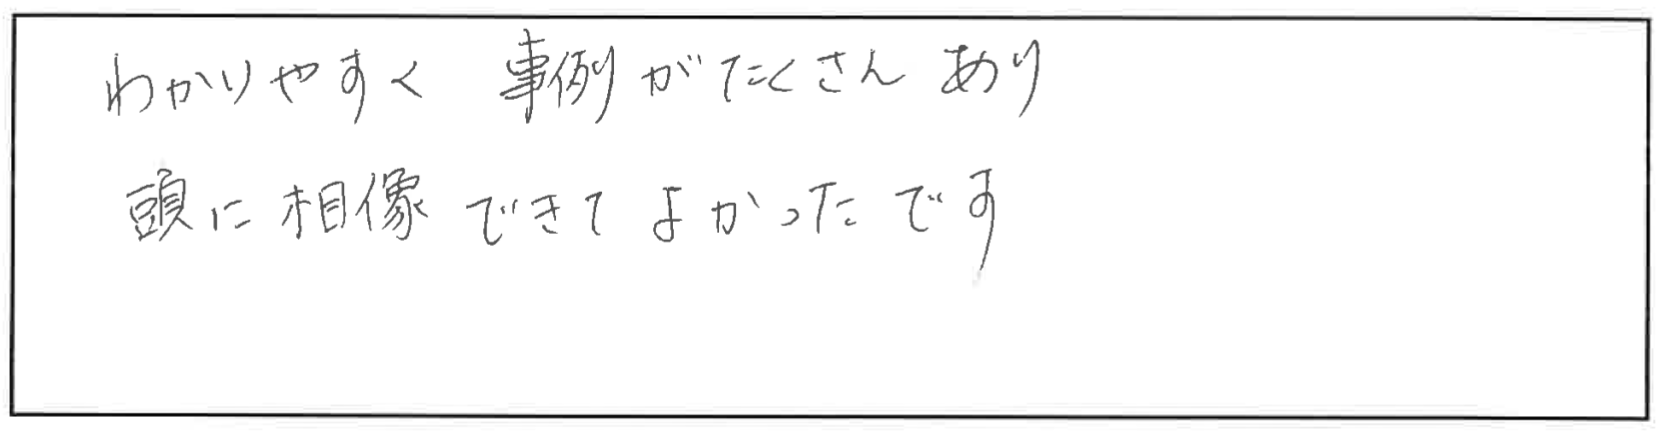 わかりやすく 事例がたくさん あり
頭に 相像 できて よかったです